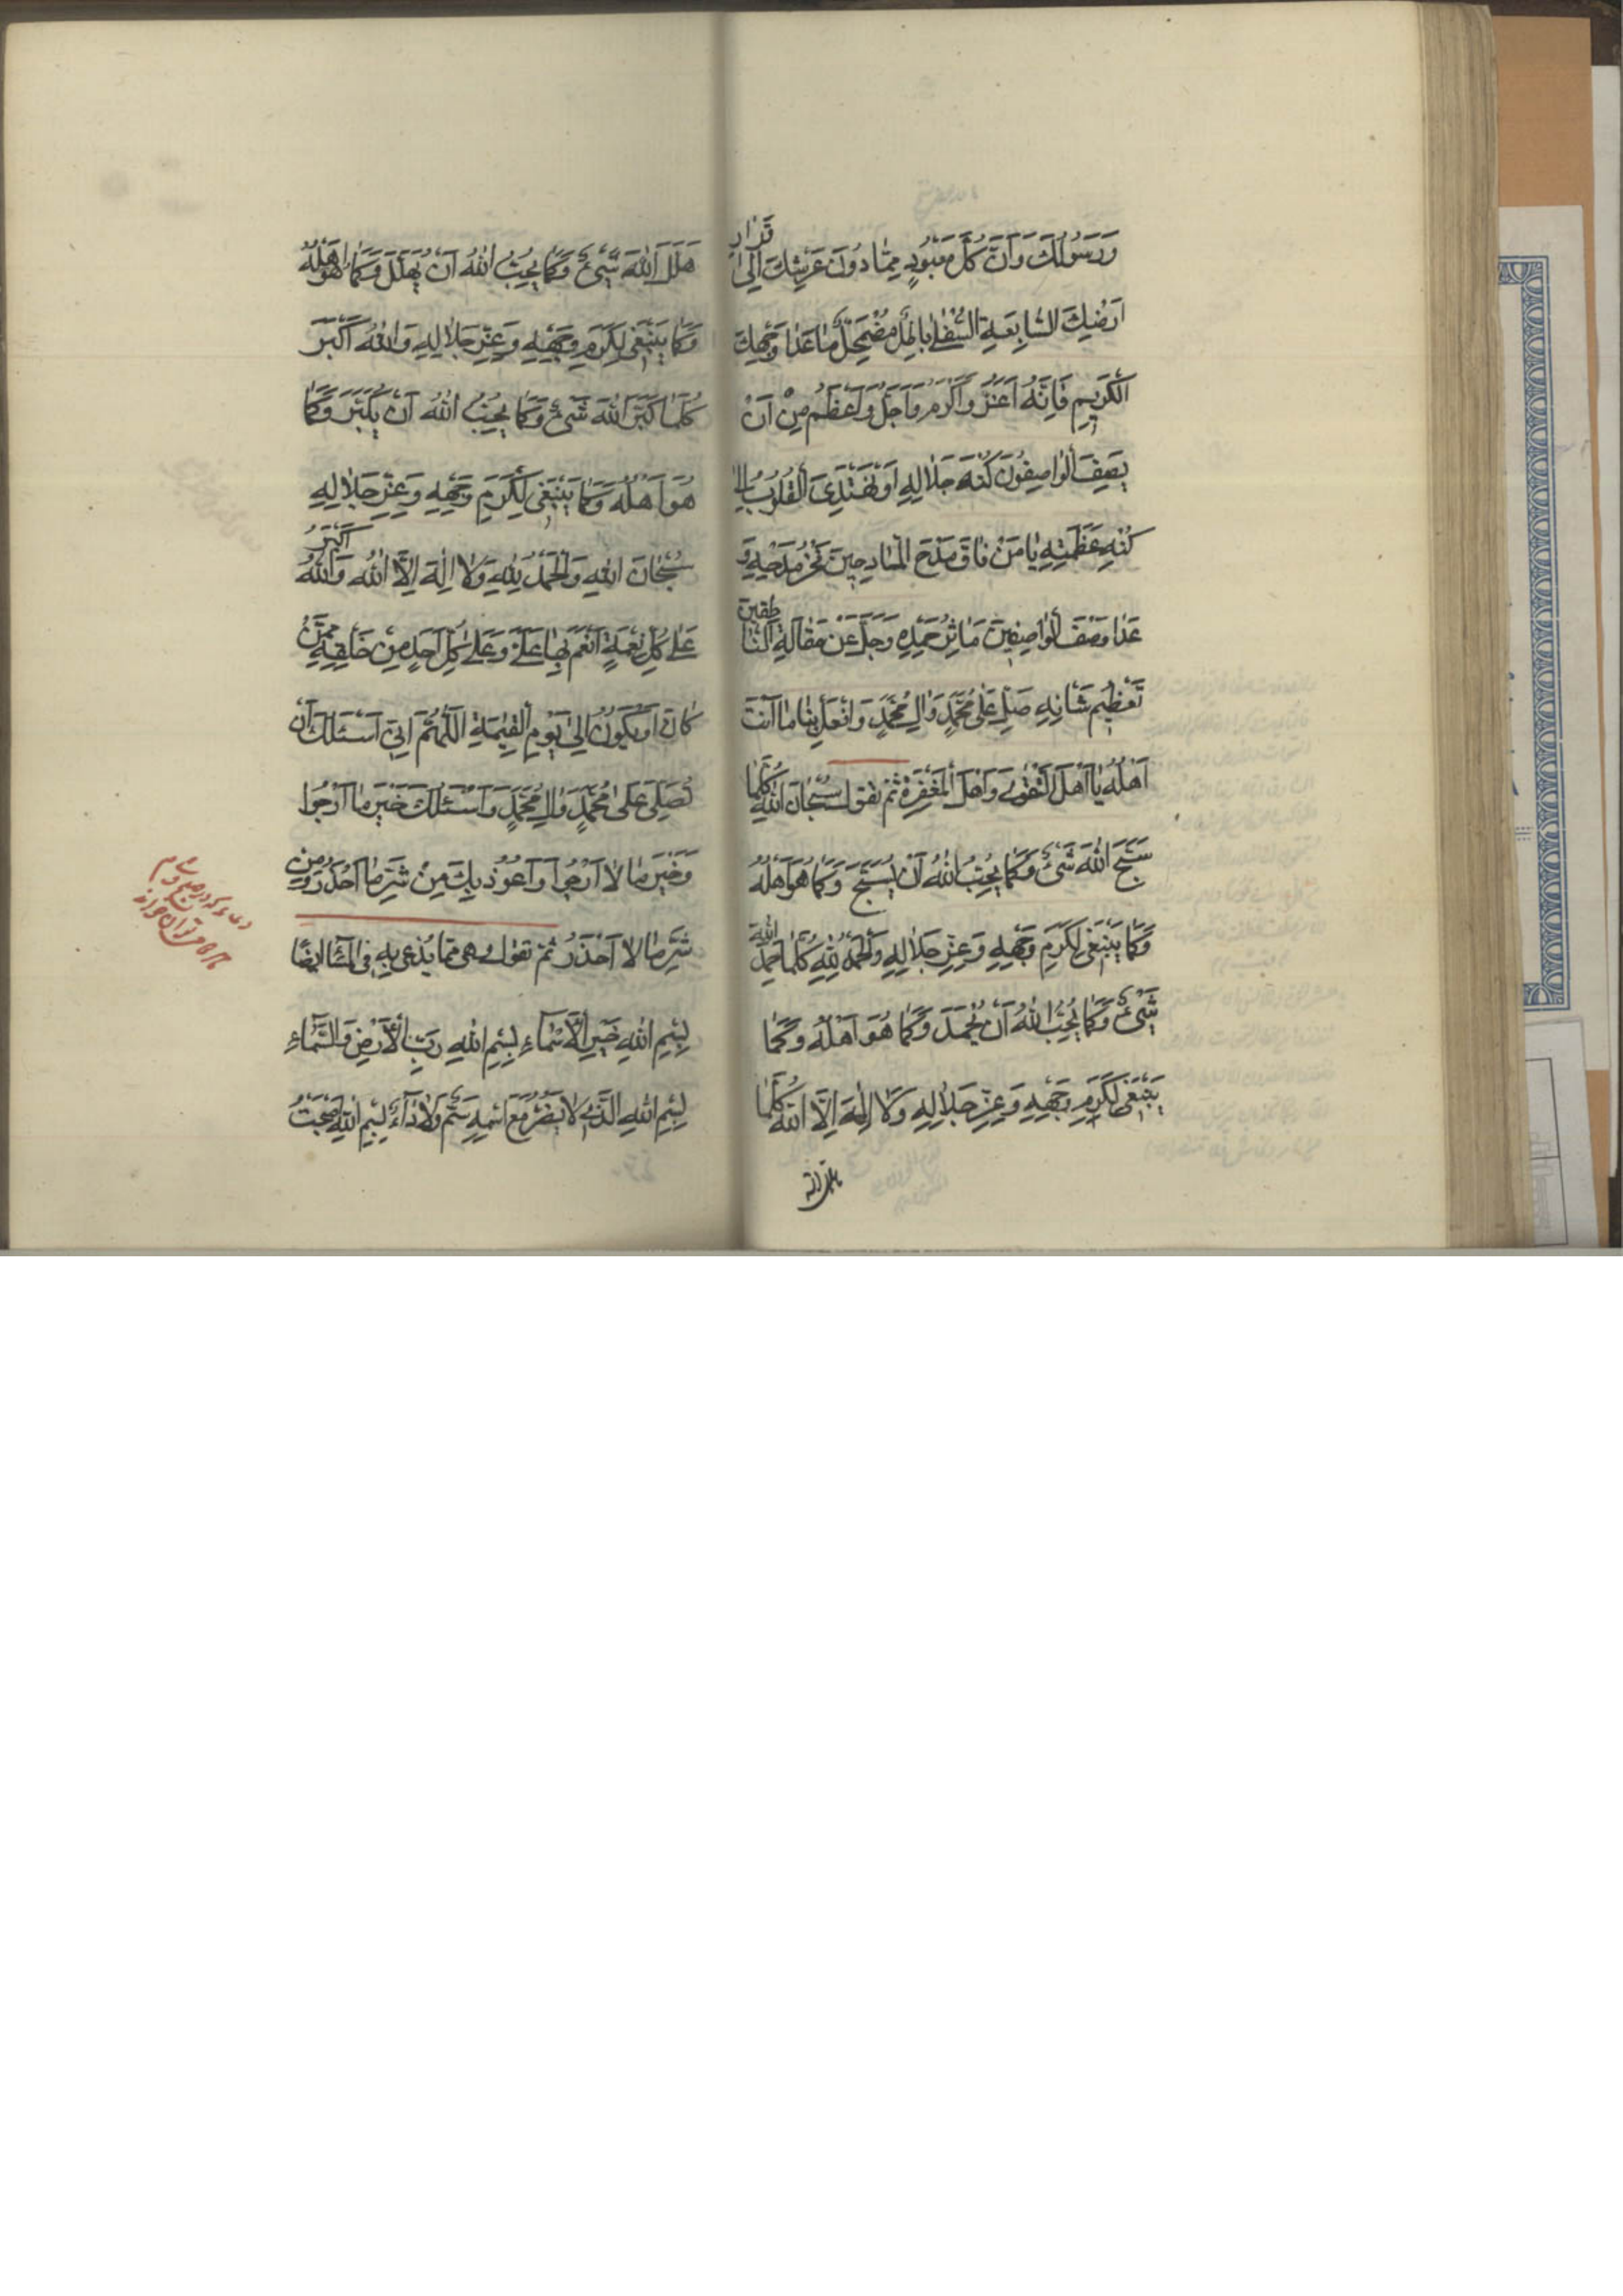 وَرَسُولُكَ وَاَنَّ كُلَّ مَعْبُودٍ مِمّٰا دُونَ عَرْشِكَ اِلىٰ قَرٰارِ
اَرَضْيِكَ السّٰابِعَةِ السُّفْلىٰ بٰاطِلٌ مُضْمَحِلٌّ مٰا عَدٰا وَجْهِكَ
الْكَرٖيمِ فَاِنَّهُ اَعَزُّ وَاَكْرَمُ وَاَجَلُّ وَاَعْظَمُ مِنْ اَنْ
يَصِفَ الْوٰاصِفُونَ كُنْهَ جَلٰالِهِ اَوْ تَهْتَدِىَ الْقُلُوبُ اِلىٰ
كُنْهِ عَظَمَتِهِ يٰا مَنْ فٰاقَ مَدْحَ الْمٰادِحٖينَ فَخْرُ مَدْحِهِ وَ
عَدٰا وَصْفَ الْوٰاصِفٖينَ مَاٰثِرُ حَمْدِهِ وَجَلَّ عَنْ مَقٰالَةِ النّٰاطِقٖينَ
تَعْظٖيمُ شَاْنِهِ صَلِّ عَلىٰ مُحَمَّدٍ وَاٰلِ مُحَمَّدٍ وَافْعَلْ بِنٰا مٰا اَنْتَ
اَهْلُهُ يٰا اَهْلَ التَّقْوىٰ وَاَهْلَ الْمَغْفِرَةِ ثم تقول سُبْحٰانَ اللّٰهِ كُلَّمٰا
سَبَّحَ اللّٰهَ شَىْءٌ وَكَمٰا يُحِبُّ اللّٰهُ اَنْ يُسَبَّحَ وَكَمٰا هُوَ اَهْلُهُ
وَكَمٰا يَنْبَغٖى لِكَرَمِ وَجْهِهِ وَعِزِّ جَلٰالِهِ وَالْحَمْدُ لِلّٰهِ كُلَّمٰا حَمِدَ اللّٰهَ
شَىْءٌ وَكَمٰا يُحِبُّ اللّٰهُ اَنْ يُحْمَدَ وَكَمٰا هُوَ اَهْلُهُ وَكَمٰا
يَنْبَغٖى لِكَرَمِ وَجْهِهِ وَعِزِّ جَلٰالِهِ وَلٰا اِلٰهَ اِلَّا اللّٰهُ كُلَّمٰا
هَلَّلَ اللّٰهَ شَىْءٌ وَكَمٰا يُحِبُّ اللّٰهُ اَنْ يُهَلَّلَ وَكَمٰا هُوَ اَهْلُهُ
وَكَمٰا يَنْبَغٖى لِكَرَمِ وَجْهِهِ وَعِزِّ جَلٰالِهِ وَاللّٰهُ اَكْبَرُ
كُلَّمٰا كَبَّرَ اللّٰهَ شَىْءٌ وَكَمٰا يُحِبُّ اللّٰهُ اَنْ يُكَبَّرَ وَكَمٰا
هُوَ اَهْلُهُ وَكَمٰا يَنْبَغٖى لِكَرَمِ وَجْهِهِ وَعِزِّ جَلٰالِهِ
سُبْحٰانَ اللّٰهِ وَالْحَمْدُ لِلّٰهِ وَلٰا اِلٰهَ اِلَّا اللّٰهُ وَاللّٰهُ اَكْبَرُ
عَلىٰ كُلِّ نِعْمَةٍ اَنْعَمَ بِهٰا عَلَىَّ وَعَلىٰ كُلِّ اَحَدٍ مِنْ خَلْقِهِ مِمَّنْ
كٰانَ اَوْ يَكُونُ اِلىٰ يَوْمِ الْقِيٰمَةِ اَللّٰهُمَّ اِنّٖى اَسْئَلُكَ اَنْ
تُصَلِّىَ عَلىٰ مُحَمَّدٍ وَاٰلِ مُحَمَّدٍ وَاَسْئَلُكَ خَيْرَ مٰا اَرْجُوا
وَخَيْرَ مٰا لٰا اَرْجُوا وَاَعُوذُ بِكَ مِنْ شَرِّ مٰا اَحْذَرُ وَمِنْ
شَرِّ مٰا لٰا اَحْذَرُ ثم تقول وهى مما يدعى به فى المسآء ايضًا
بِسْمِ اللّٰهِ خَيْرِ الْاَسْمٰاءِ بِسْمِ اللّٰهِ رَبِّ الْاَرْضِ وَالسَّمٰاءِ
بِسْمِ اللّٰهِ الَّذٖى لٰا يَضُرُّ مَعَ اسْمِهِ سَمٌّ وَلٰا دٰاءٌ بِسْمِ اللّٰهِ اَصْبَحْتُ